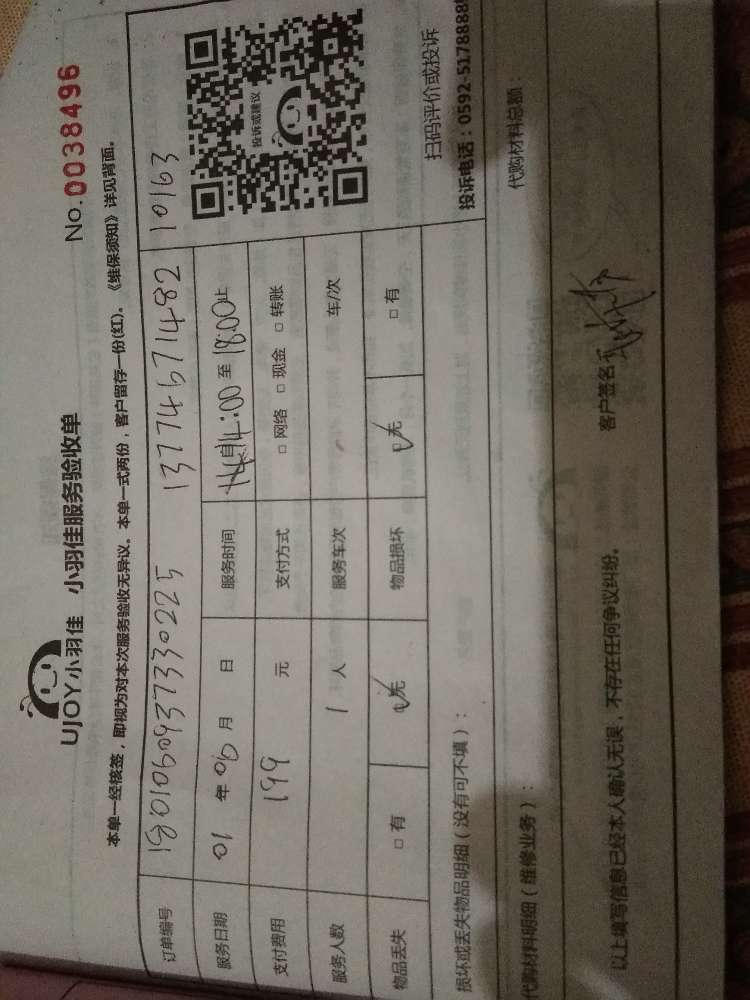 UJOY小羽佳 小羽佳服务验收单
No.0038496
本单一经核签，即视为对本次服务验收无异议。本单一式两份，客户留存一份(红)。《维保须知》详见背面。
订单编号 13774571482 10163
服务日期 01 年 06 月 日 服务时间 14:00 至 18:00止
支付费用 199 元 支付方式 □ 网络 □ 现金 □ 转账
服务人数 1 人 服务车次 车/次
物品丢失 □ 有 □ 无 物品损坏 □ 无 □ 有
投诉或建议
扫码评价或投诉
投诉电话：0592-5178888
损坏或丢失物品明细（没有可不填）：
代购材料明细（维修业务）： 代购材料总额：
以上填写信息已经本人确认无误，不存在任何争议纠纷。 客户签名